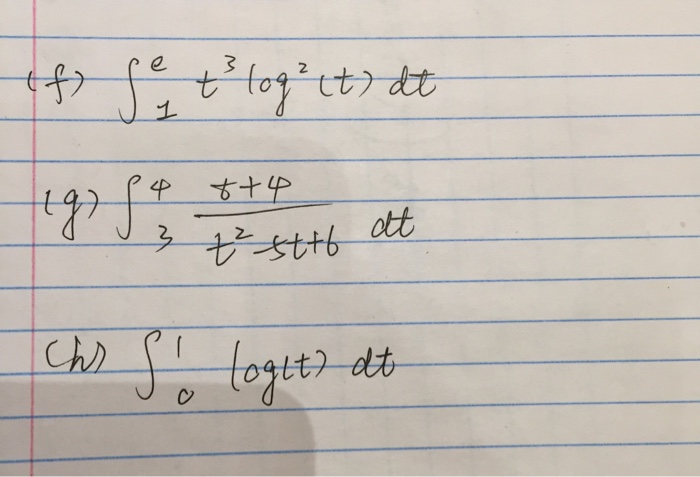 (f) ∫₁ᵉ t³ log²(t) dt
(g) ∫₃⁴ (t+4)/(t²-5t+6) dt
(h) ∫₀¹ log(t) dt